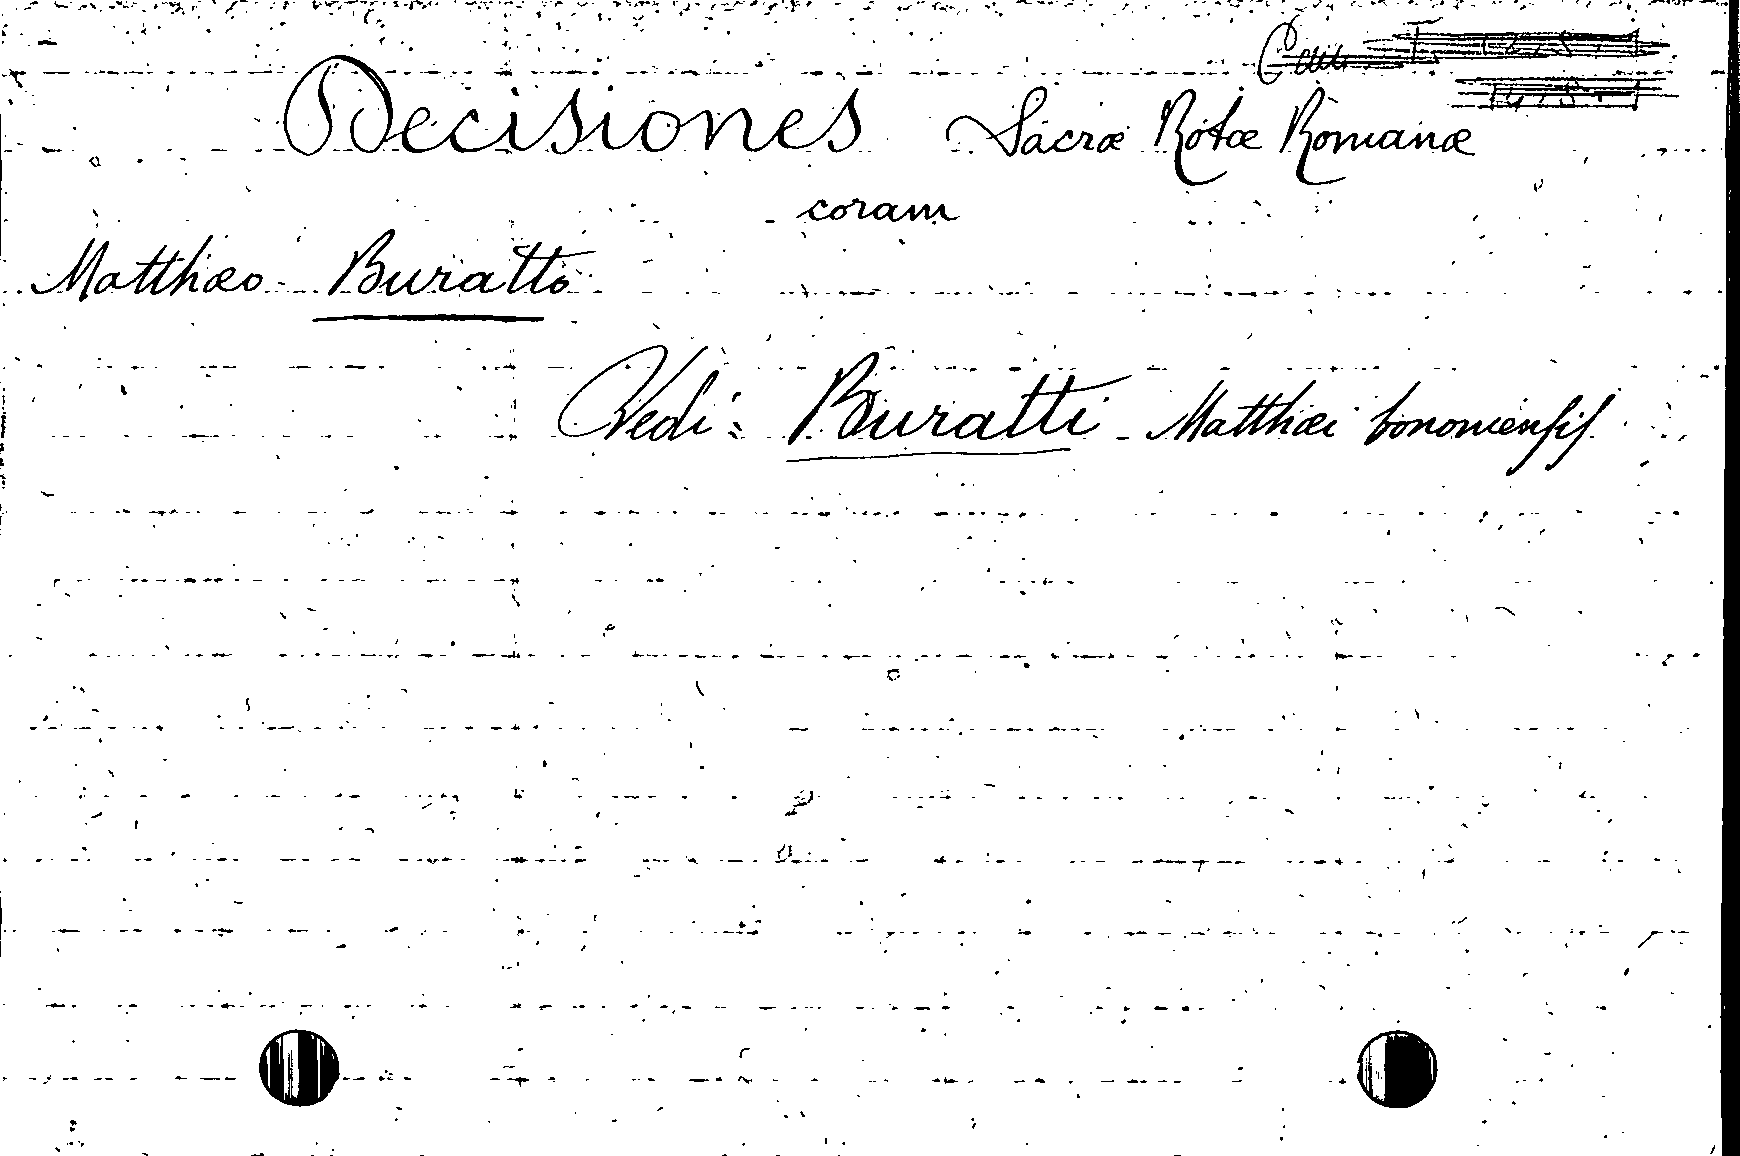 Decisiones Sacræ Rotæ Romanæ
coram
Matthæo Buratto
Vedi: Buratti Matthæi bononiensis